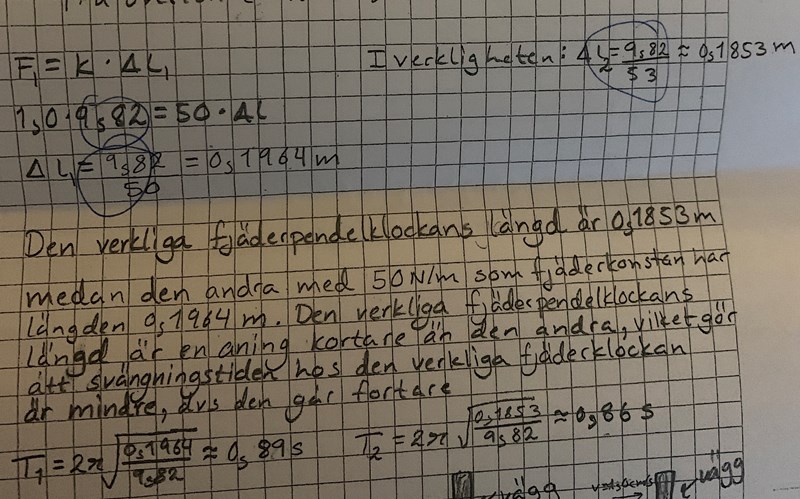 F₁ = K · ΔL₁
I verkligheten: ΔL₂ = 9,82/53 ≈ 0,1853 m
1,0 · 9,82 = 50 · ΔL
ΔL₁ = 9,82/50 = 0,1964 m
Den verkliga fjäderpendelklockans längd är 0,1853 m
medan den andra med 50 N/m som fjäderkonstan har
längden 0,1964 m. Den verkliga fjäderpendelklockans
längd är en aning kortare än den andra, vilket gör
att svängningstiden hos den verkliga fjäderklockan
är mindre, dvs den går fortare
T₁ = 2π√(0,1964/9,82) ≈ 0,89 s
T₂ = 2π√(0,1853/9,82) ≈ 0,86 s
vägg
vägg